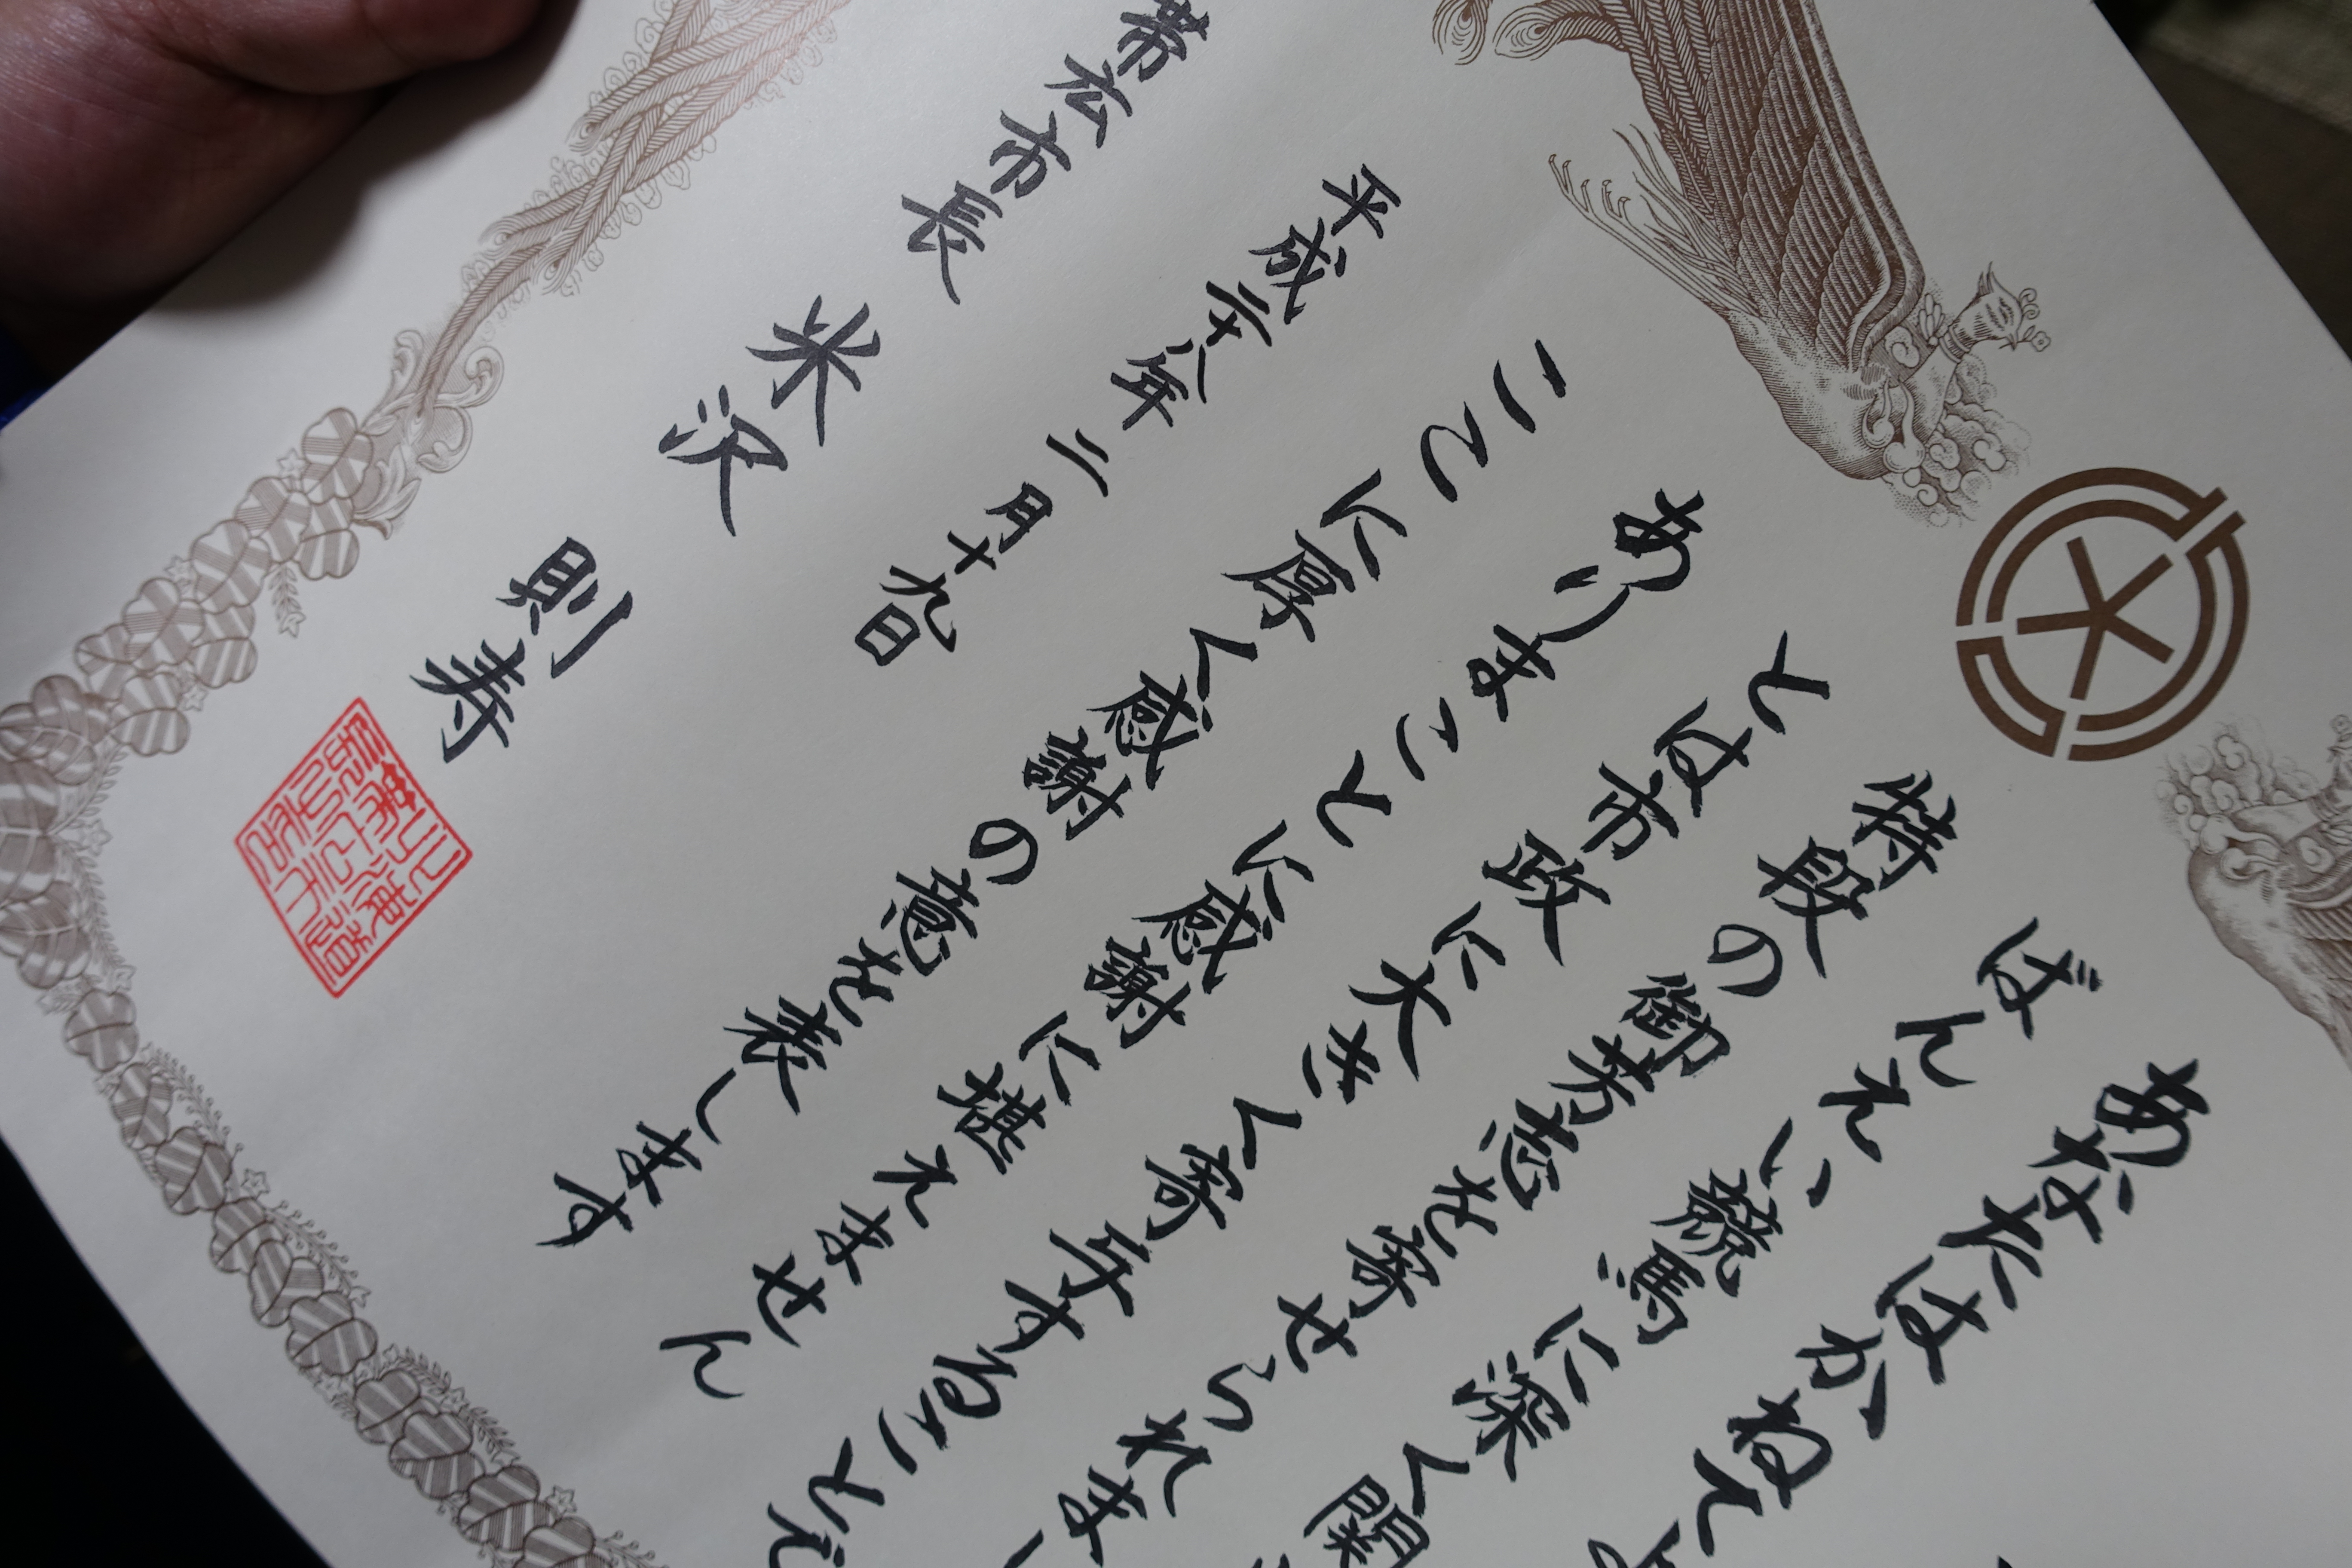 あなたはかねてよ
ばんえい競馬に深く関
特段の御芳志を寄せられまし
とは市政に大きく寄与するところ
ありまことに感謝に堪えません
ここに厚く感謝の意を表します
平成二十八年二月十九日
帯広市長 米沢 則寿